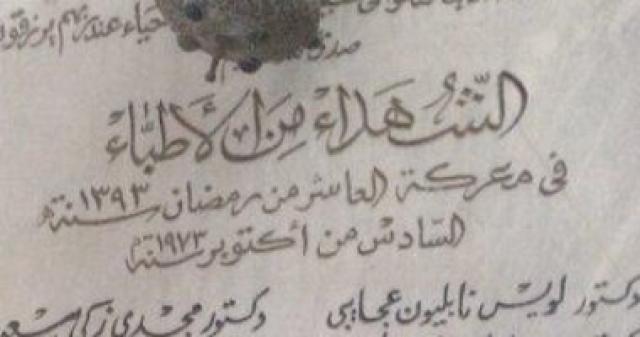 أحياء عند ربهم يرزقون
صدق
الشهداء من الأطباء
فى معركة العاشر من رمضان سنة ١٣٩٣هـ
السادس من أكتوبر سنة ١٩٧٣م
دكتور لويس نابليون عجايبى دكتور مجدى زكى